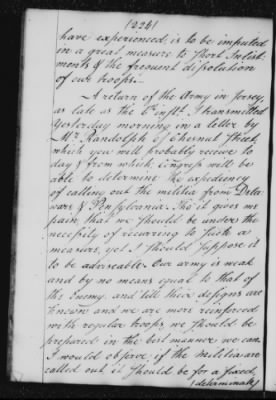 (226)
have experienced, is to be imputed
in a great measure to Short Inlist
ments & the frequent dissolution
of our troops.
A return of the Army in Jersey,
as late as the 6th inst. I transmitted
yesterday morning in a letter by
Mr. Randolph of Chesnut Street,
which you will probably receive to
day & from which, Congress will be
able to determine the expediency
of calling out the militia from Dela
ware & Pensylvania. Tho it gives me
pain, that we should be under the
necessity of recurring to Such a
measure, yet I Should Suppose it
to be adviseable. Our army is weak
and by no means equal to that of
the Enemy, and till their designs are
known and we are more reinforced
with regular troops, we should be
prepared in the best manner we can.
I would observe, if the militia are
called out, it Should be for a fixed,
(determinate)